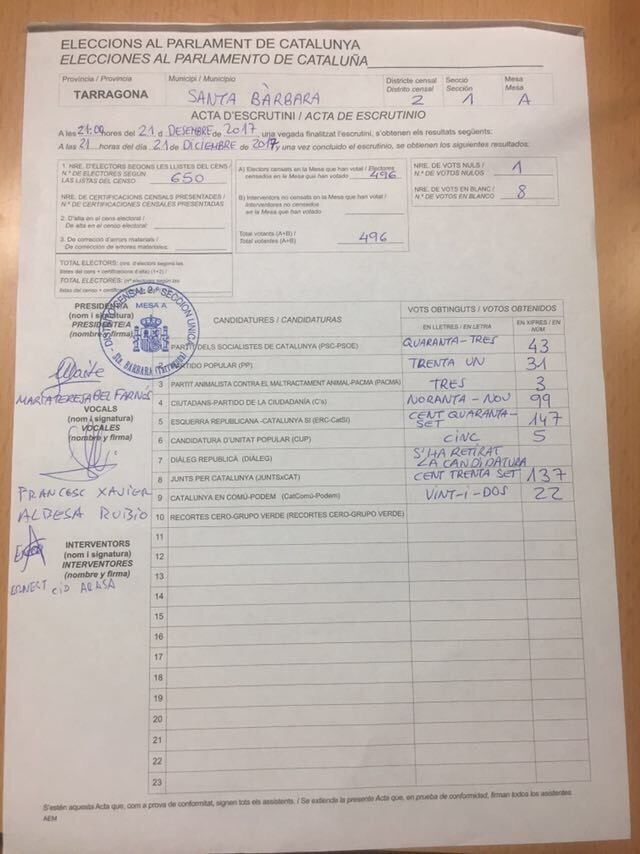 ELECCIONS AL PARLAMENT DE CATALUNYA
ELECCIONES AL PARLAMENTO DE CATALUÑA
Província / Provincia
TARRAGONA
Municipi / Municipio
SANTA BÀRBARA
Districte censal
Distrito censal
2
Secció
Sección
1
Mesa
Mesa
A
ACTA D'ESCRUTINI / ACTA DE ESCRUTINIO
A les 21:00 hores del 21 d DESEMBRE de 2017, una vegada finalitzat l'escrutini, s'obtenen els resultats següents:
A las 21 horas del día 21 de DICIEMBRE de 2017 y una vez concluido el escrutinio, se obtienen los siguientes resultados:
1. NRE. D'ELECTORS SEGONS LES LLISTES DEL CENS /
N.º DE ELECTORES SEGÚN
LAS LISTAS DEL CENSO
650
NRE. DE CERTIFICACIONS CENSALS PRESENTADES /
N.º DE CERTIFICACIONES CENSALES PRESENTADAS
2. D'alta en el cens electoral /
De alta en el censo electoral:
3. De correcció d'errors materials /
De corrección de errores materiales:
TOTAL ELECTORS: (nre. d'electors segons les
llistes del cens + certificacions d'alta) (1+2) /
TOTAL ELECTORES: (nº electores según las
listas del censo + certificaciones de alta)
A) Electors censats en la Mesa que han votat / Electores
censados en la Mesa que han votado
496
B) Interventors no censats en la Mesa que han votat /
Interventores no censados
en la Mesa que han votado
Total votants (A+B) /
Total votantes (A+B)
496
NRE. DE VOTS NULS /
N.º DE VOTOS NULOS
1
NRE. DE VOTS EN BLANC /
N.º DE VOTOS EN BLANCO
8
DISTRITO CENSAL 2.º SECCION UNICA
MESA A
Sta. BÁRBARA (Tarragona)
PRESIDENT/A
(nom i signatura)
PRESIDENTE/A
(nombre y firma)
MARIA TERESA BEL FARNÓS
VOCALS
(nom i signatura)
VOCALES
(nombre y firma)
FRANCESC XAVIER
ALBESA RUBIO
INTERVENTORS
(nom i signatura)
INTERVENTORES
(nombre y firma)
ERNEST CID ARASA
CANDIDATURES / CANDIDATURAS
VOTS OBTINGUTS / VOTOS OBTENIDOS
EN LLETRES / EN LETRA
EN XIFRES / EN NÚM.
PARTIT DELS SOCIALISTES DE CATALUNYA (PSC-PSOE) QUARANTA-TRES 43
2 PARTIDO POPULAR (PP) TRENTA UN 31
3 PARTIT ANIMALISTA CONTRA EL MALTRACTAMENT ANIMAL-PACMA (PACMA) TRES 3
4 CIUTADANS-PARTIDO DE LA CIUDADANÍA (C's) NORANTA-NOU 99
5 ESQUERRA REPUBLICANA -CATALUNYA SÍ (ERC-CatSí) CENT QUARANTA-SET 147
6 CANDIDATURA D'UNITAT POPULAR (CUP) CINC 5
7 DIÀLEG REPUBLICÀ (DIÀLEG) S'HA RETIRAT LA CANDIDATURA
8 JUNTS PER CATALUNYA (JUNTSxCAT) CENT TRENTA SET 137
9 CATALUNYA EN COMÚ-PODEM (CatComú-Podem) VINT-I-DOS 22
10 RECORTES CERO-GRUPO VERDE (RECORTES CERO-GRUPO VERDE)
11
12
13
14
15
16
17
18
19
20
21
22
23
S'estén aquesta Acta que, com a prova de conformitat, signen tots els assistents. / Se extiende la presente Acta que, en prueba de conformidad, firman todos los asistentes.
AEM